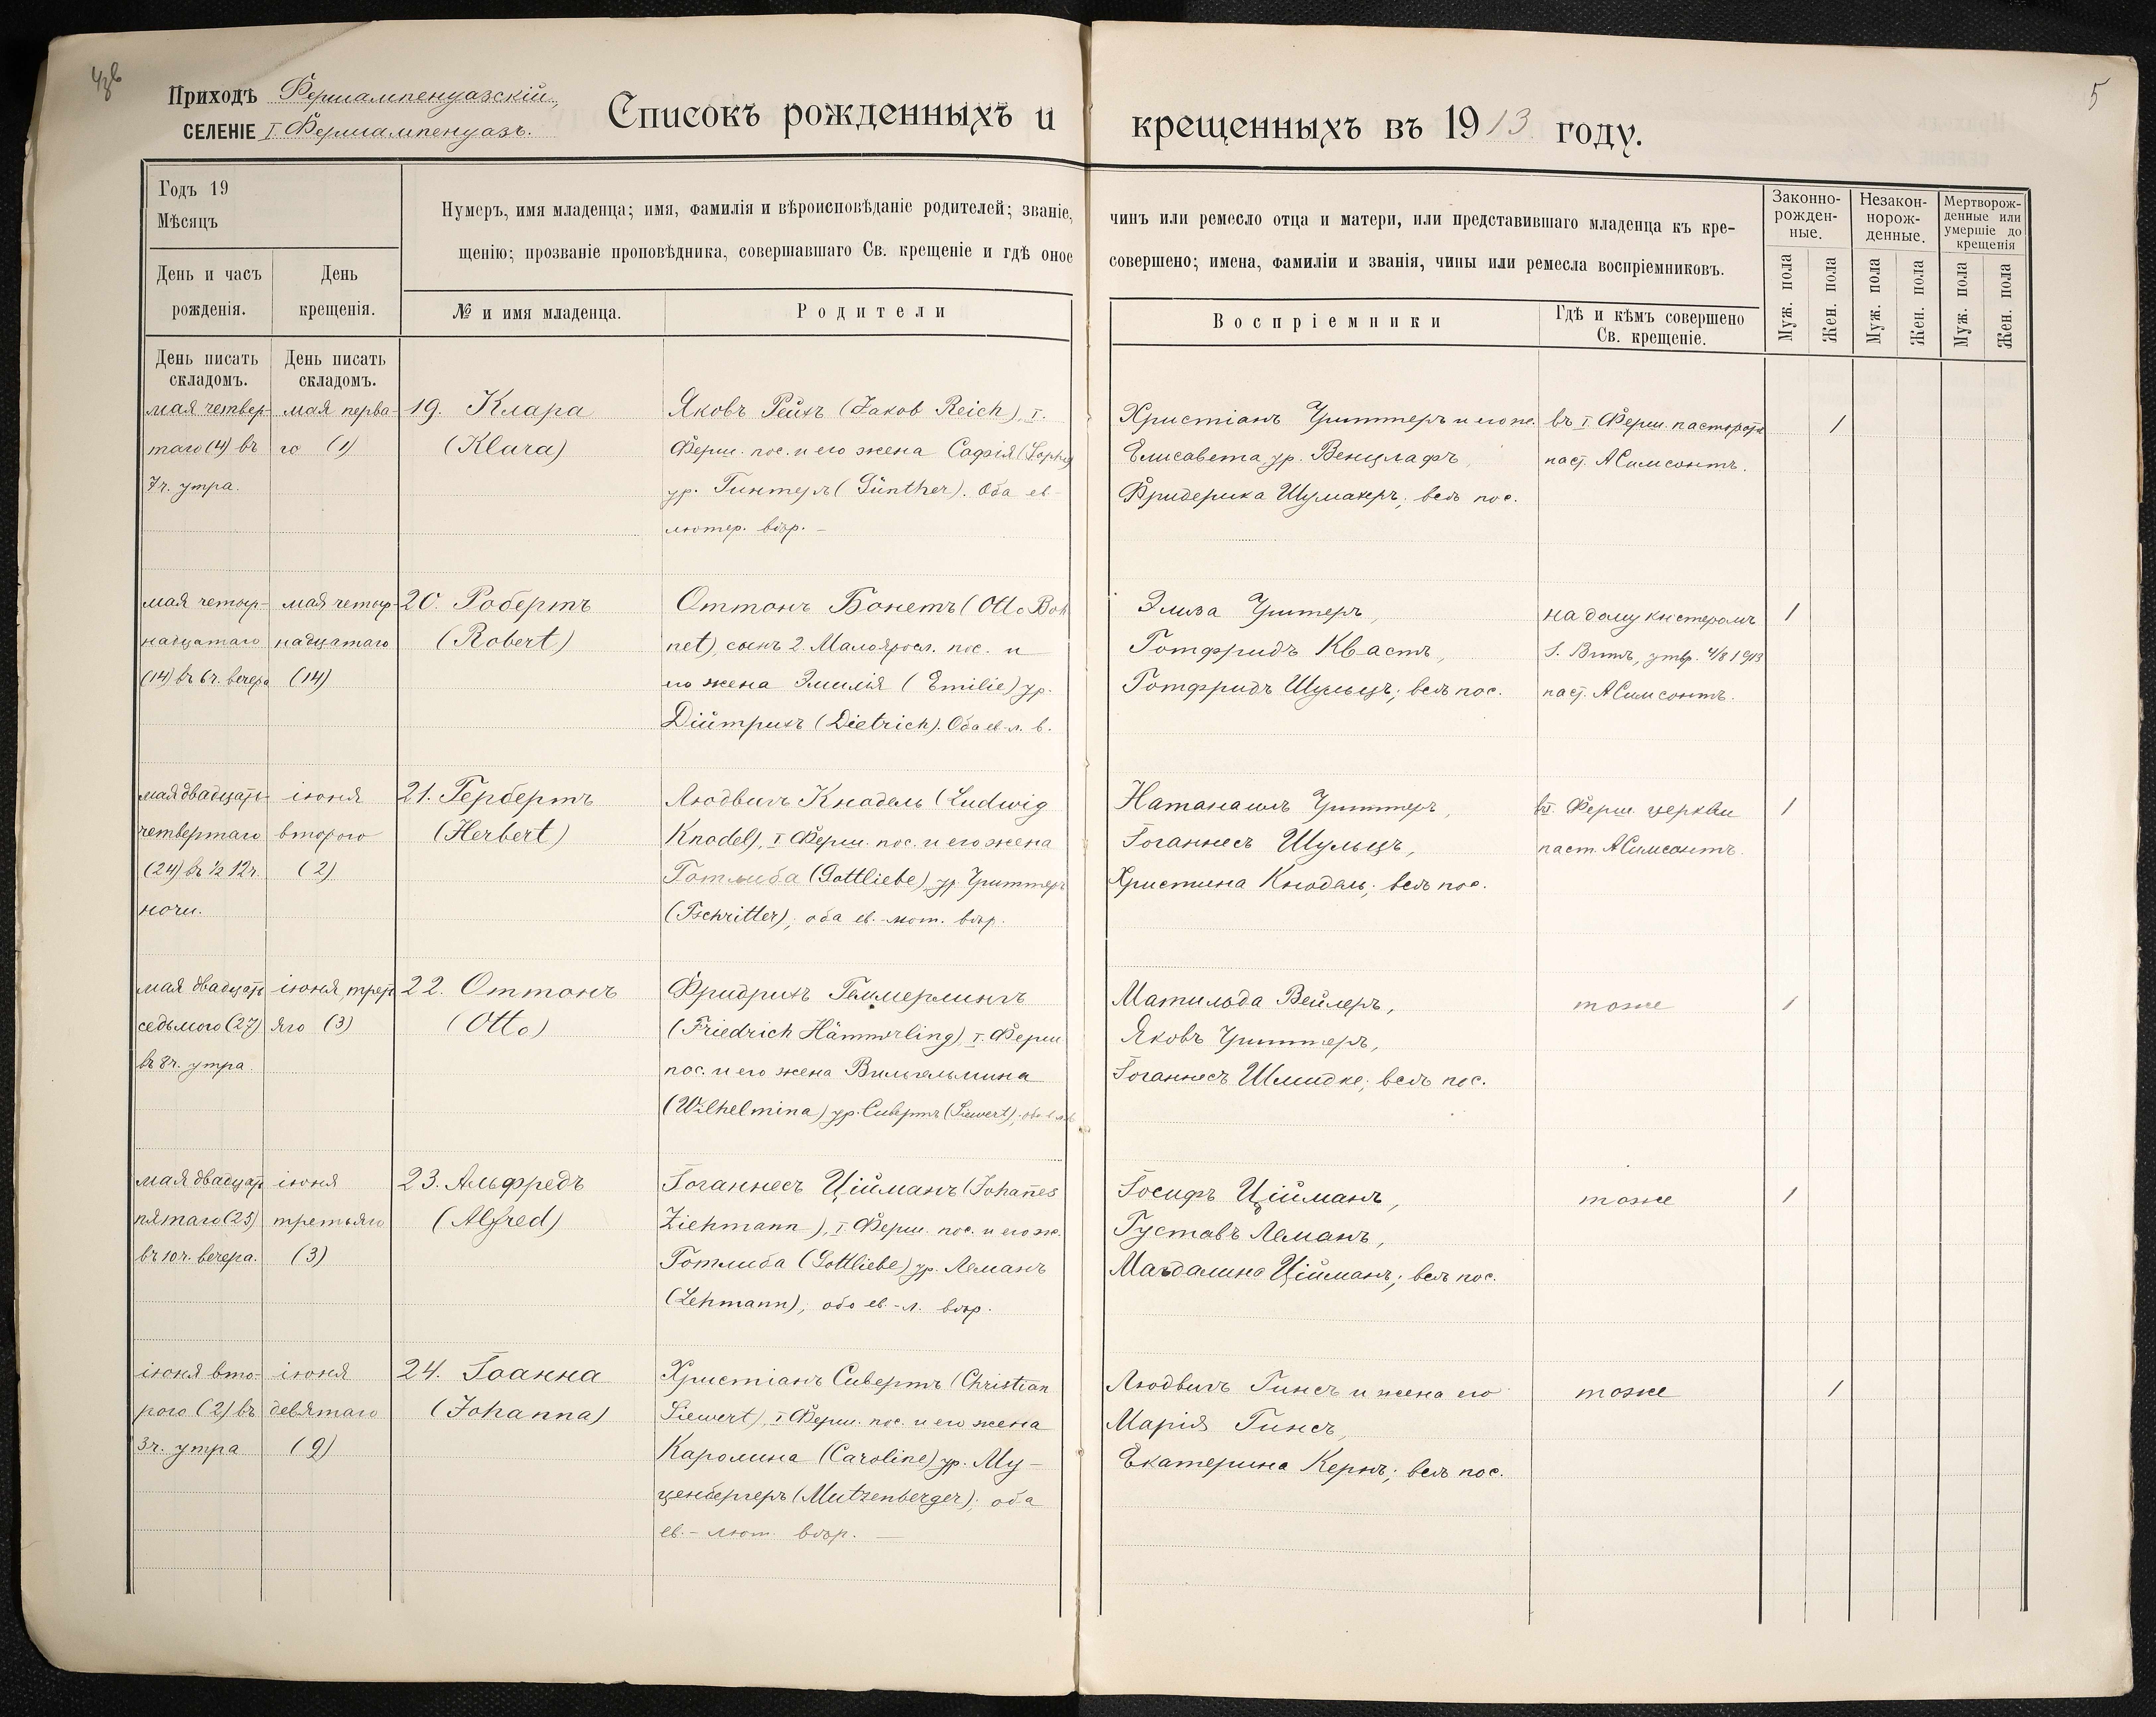 Приходъ Фершампенуазскій,
СЕЛЕНІЕ I Фершампенуазъ.
Списокъ рожденныхъ и крещенныхъ въ 1913 году.
5
Годъ 19
Мѣсяцъ
День и часъ рожденія.
День крещенія.
Нумеръ, имя младенца; имя, фамилія и вѣроисповѣданіе родителей; званіе, чинъ или ремесло отца и матери, или представившаго младенца къ кре-
щенію; прозваніе проповѣдника, совершавшаго Св. крещеніе и гдѣ оное совершено; имена, фамиліи и званія, чины или ремесла воспріемниковъ.
№ и имя младенца.
Родители
Воспріемники
Гдѣ и кѣмъ совершено
Св. крещеніе.
Законно-
рожден-
ные.
Незакон-
норож-
денные.
Мертворож-
денные или
умершіе до
крещенія
Муж. пола
Жен. пола
Муж. пола
Жен. пола
Муж. пола
Жен. пола
День писать
складомъ.
День писать
складомъ.
мая четвер-
таго (4) въ
7 ч. утра.
мая перва-
го (1)
19. Клара
(Klara)
Яковъ Рейхъ (Jakob Reich), I.
Ферш. пос. и его жена Софія (Sophie)
ур. Гинтеръ (Günther). Оба ев-
лютер. вѣр. –
Христіанъ Чриттеръ и его же.
Елисавета, ур. Венцлафъ,
Фридерика Шумахеръ; всѣ пос.
въ I. Ферш. пасторатѣ
паст. А Симсонтъ.
1
мая четыр-
надцатаго
(14) въ 6 ч. вечера
мая четыр-
надцатаго
(14)
20. Робертъ
(Robert)
Оттонъ Бонетъ (Otto Bon
net), сынъ 2. Малояросл. пос. и
его жена Эмилія (Emilie) ур.
Дійтрихъ (Dietrich). Оба ев-л. в.
Элиза Чритеръ,
Готфридъ Квастъ,
Готфридъ Шульцъ; всѣ пос.
на дому кистеромъ
І. Витъ, утвр. 4/8 1913
паст. А Симсонтъ.
1
мая двадцать-
четвертаго
(24) въ ½ 12 ч.
ночи.
іюня
второго
(2)
21. Гербертъ
(Herbert)
Людвигъ Кнодель (Ludwig
Knodel), I Ферш. пос. и его жена
Готлиба (Gottliebe), ур Чриттеръ
(Tschritter); оба ев.-лют. вѣр.
Натанаилъ Чриттеръ,
Іоганнесъ Шульцъ,
Христина Кнодель; всѣ пос.
въ I. Ферш. церкви
паст. А Симсонтъ.
1
мая двадцать
седьмого (27)
въ 8 ч. утра.
іюня, треть
яго (3)
22. Оттонъ
(Otto)
Фридрихъ Геммерлингъ
(Friedrich Hämmerling), I. Ферш
пос. и его жена Вильгельмина
(Wilhelmina) ур. Сивертъ (Siewert);
Матильда Вейлеръ,
Яковъ Чриттеръ,
Іоганнесъ Шмидке; всѣ пос.
тоже
1
мая двадцать
пятаго (25)
въ 10 ч. вечера.
іюня
третьяго
(3)
23. Альфредъ
(Alfred)
Іоганнесъ Ційманъ (Johañes
Ziehmann), I Ферш. пос. и его ж.
Готлиба (Gottliebe) ур. Леманъ
(Lehmann); оба ев.-л. вѣр.
Іосифъ Ційманъ,
Густавъ Леманъ,
Магдалина Ційманъ; всѣ пос.
тоже
1
іюня вто-
рого (2) въ
3 ч. утра
іюня
девятаго
(9)
24. Іоанна
(Johanna)
Христіанъ Сивертъ (Christian
Siewert), I Ферш. пос. и его жена
Каролина (Caroline) ур. Му-
ценбергеръ (Mutzenberger); оба
ев.-лют. вѣр. —
Людвигъ Гинсъ и жена его
Марія Гинсъ,
Екатерина Кернъ; всѣ пос.
тоже
1